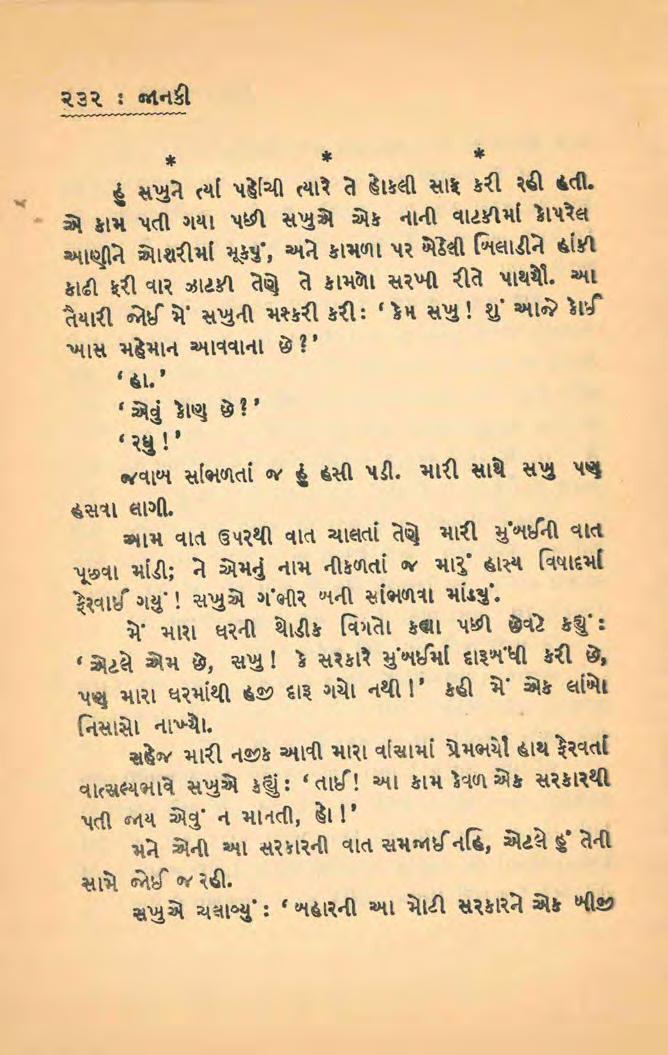 ૨૩૨ : જાનકી
* * *
હું સખુને ત્યાં પહોંચી ત્યારે તે હોકલી સાફ કરી રહી હતી.
એ કામ પતી ગયા પછી સખુએ એક નાની વાટકીમાં કોપરેલ
આણીને ઓશરીમાં મૂક્યું, અને કામળા પર બેઠેલી બિલાડીને હાંકી
કાઢી ફરી વાર ઝાટકી તેણે તે કામળો સરખી રીતે પાથર્યો. આ
તૈયારી જોઈ મેં સખુની મશ્કરી કરી: ‘ કેમ સખુ! શું આજે કોઈ
ખાસ મહેમાન આવવાના છે?’
‘હા.’
‘એવું કોણ છે?’
‘રઘુ!’
જવાબ સાંભળતાં જ હું હસી પડી. મારી સાથે સખુ પણ
હસવા લાગી.
આમ વાત ઉપરથી વાત ચાલતાં તેણે મારી મુંબઈની વાત
પૂછવા માંડી; ને એમનું નામ નીકળતાં જ મારું હાસ્ય વિષાદમાં
ફેરવાઈ ગયું! સખુએ ગંભીર બની સાંભળવા માંડ્યું.
મેં મારા ઘરની થોડીક વિગતો કહ્યા પછી છેવટે કહ્યું:
‘એટલે એમ છે, સખુ! કે સરકારે મુંબઈમાં દારૂબંધી કરી છે,
પણ મારા ઘરમાંથી હજી દારૂ ગયો નથી!’ કહી મેં એક લાંબો
નિસાસો નાખ્યો.
સહેજ મારી નજીક આવી મારા વાંસામાં પ્રેમભર્યો હાથ ફેરવતાં
વાત્સલ્યભાવે સખુએ કહ્યું: ‘તાઈ! આ કામ કેવળ એક સરકારથી
પતી જાય એવું ન માનતી, હો!’
મને એની આ સરકારની વાત સમજાઈ નહિ, એટલે હું તેની
સામે જોઈ જ રહી.
સખુએ ચલાવ્યું: ‘બહારની આ મોટી સરકારને એક બીજી